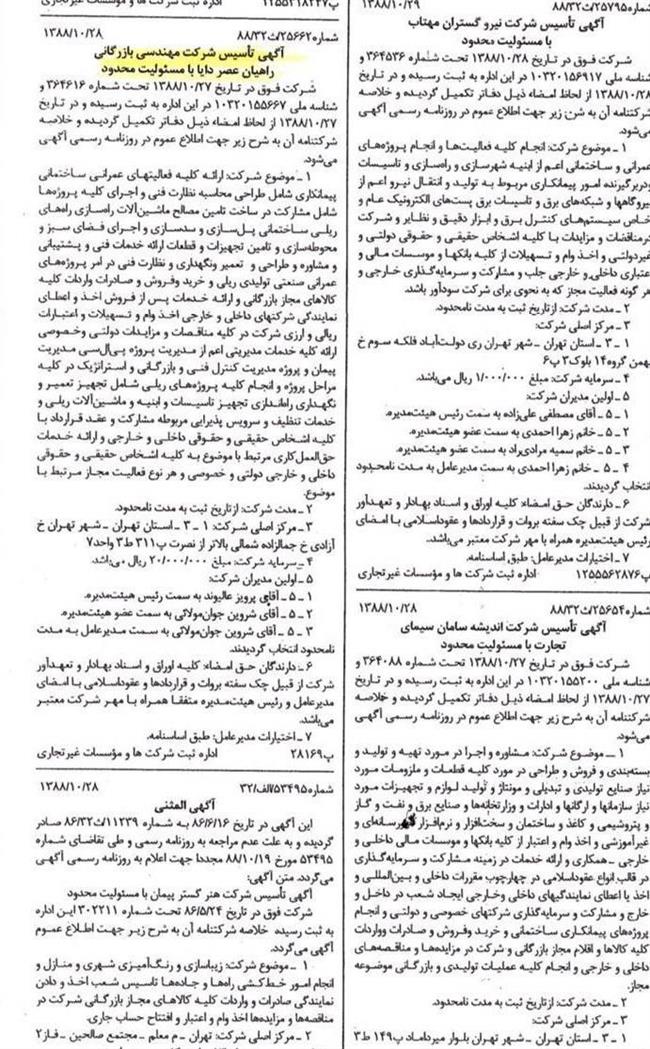 شماره۲۵۷۹۵/ث۸۸/۳۲ ۱۳۸۸/۱۰/۲۹
آگهی تأسیس شرکت نیرو گستران مهتاب
با مسئولیت محدود
شرکت فوق در تاریخ ۱۳۸۸/۱۰/۲۸ تحت شماره ۳۶۴۵۳۶ و
شناسه ملی ۱۰۳۲۰۱۵۶۹۱۷ در این اداره به ثبت رسیده و در تاریخ
۱۳۸۸/۱۰/۲۸ از لحاظ امضاء ذیل دفاتر تکمیل گردیده و خلاصه
شرکتنامه آن به شرح زیر جهت اطلاع عموم در روزنامه رسمی آگهی
می‌شود.
۱ ـ موضوع شرکت: انجام کلیه فعالیت‌ها و انجام پروژه‌های
عمرانی و ساختمانی اعم از ابنیه شهرسازی و راه‌سازی و تاسیسات
ودربرگیرنده امور پیمانکاری مربوط به تولید و انتقال نیرو اعم از
نیروگاهها و شبکه‌های برق و تاسیسات برق پست‌های الکترونیک عام و
خاص سیستم‌های کنترل برق و ابزار دقیق و نظایر و شرکت
درمناقصات و مزایدات با کلیه اشخاص حقیقی و حقوقی دولتی و
غیردولتی و اخذ وام و تسهیلات از کلیه بانکها و موسسات مالی و
اعتباری داخلی و خارجی جلب و مشارکت و سرمایه‌گذاری خارجی و
هر گونه فعالیت مجاز که به نحوی برای شرکت سودآور باشد.
۲ ـ مدت شرکت: ازتاریخ ثبت به مدت نامحدود.
۳ ـ مرکز اصلی شرکت:
۱ ـ ۳ ـ استان تهران ـ شهر تهران ری دولت‌آباد فلکه سوم خ
بهمن گروه۱۴ بلوک۳ پ۶
۴ ـ سرمایه شرکت: مبلغ ۱/۰۰۰/۰۰۰ ریال می‌باشد.
۵ ـ اولین مدیران شرکت:
۱ ـ ۵ ـ آقای مصطفی علی‌زاده به سمت رئیس هیئت‌مدیره.
۲ ـ ۵ ـ خانم زهرا احمدی به سمت عضو هیئت‌مدیره.
۳ ـ ۵ ـ خانم سمیه مرادی‌راد به سمت عضو هیئت‌مدیره.
۴ ـ ۵ ـ خانم زهرا احمدی به سمت مدیرعامل به مدت نامحدود
انتخاب گردیدند.
۶ ـ دارندگان حق امضاء: کلیه اوراق و اسناد بهادار و تعهدآور
شرکت از قبیل چک سفته بروات و قراردادها و عقوداسلامی با امضای
رئیس هیئت‌مدیره همراه با مهر شرکت معتبر می‌باشد.
۷ ـ اختیارات مدیرعامل: طبق اساسنامه.
پ۱۲۵۵۵۶۲۸۷۶ اداره ثبت شرکت ها و مؤسسات غیرتجاری
شماره۲۵۶۵۴/ث۸۸/۳۲ ۱۳۸۸/۱۰/۲۸
آگهی تأسیس شرکت اندیشه سامان سیمای
تجارت با مسئولیت محدود
شرکت فوق در تاریخ ۱۳۸۸/۱۰/۲۷ تحت شماره ۳۶۴۰۸۸ و
شناسه ملی ۱۰۳۲۰۱۵۵۲۰۰ در این اداره به ثبت رسیده و در تاریخ
۱۳۸۸/۱۰/۲۷ از لحاظ امضاء ذیل دفاتر تکمیل گردیده و خلاصه
شرکتنامه آن به شرح زیر جهت اطلاع عموم در روزنامه رسمی آگهی
می‌شود.
۱ ـ موضوع شرکت: مشاوره و اجرا در مورد تهیه و تولید و
بسته‌بندی و فروش و طراحی در مورد کلیه قطعات و ملزومات مورد
نیاز صنایع تولیدی و تبدیلی و مونتاژ و تولید لوازم و تجهیزات مورد
نیاز سازمانها و ارگانها و ادارات و وزارتخانه‌ها و صنایع برق و نفت و گاز
و پتروشیمی و کاغذ و ساختمان و سخت‌افزار و نرم‌افزار رسانه‌ای و
غیرآموزشی و اخذ وام و اعتبار از کلیه بانکها و موسسات مالی داخلی و
خارجی ـ همکاری و ارائه خدمات در زمینه مشارکت و سرمایه‌گذاری
در قالب انواع عقوداسلامی در چهارچوب مقررات داخلی و بین‌المللی و
اخذ یا اعطای نمایندگیهای داخلی وخارجی ایجاد شعب در داخل و
خارج و مشارکت و سرمایه‌گذاری شرکتهای خصوصی و دولتی و انجام
پروژه‌های پیمانکاری ساختمانی و خرید وفروش و صادرات وواردات
کلیه کالاها و اقلام مجاز بازرگانی و شرکت در مزایده‌ها و مناقصه‌های
داخلی و خارجی و انجام کلیه عملیات تولیدی و بازرگانی موضوعه
مجاز.
۲ ـ مدت شرکت: ازتاریخ ثبت به مدت نامحدود.
۳ ـ مرکز اصلی شرکت:
۱ ـ ۳ ـ استان تهران ـ شهر تهران بلوار میرداماد پ۱۴۹ ط۳
پ۱۲۵۵۲۱۸۲۴۷ اداره ثبت شرکت ها و مؤسسات غیرتجاری
شماره۲۵۶۶۲/ث۸۸/۳۲ ۱۳۸۸/۱۰/۲۸
آگهی تأسیس شرکت مهندسی بازرگانی
راهیان عصر دایا با مسئولیت محدود
شرکت فوق در تاریخ ۱۳۸۸/۱۰/۲۷ تحت شماره ۳۶۴۶۱۶ و
شناسه ملی ۱۰۳۲۰۱۵۵۶۶۷ در این اداره به ثبت رسیده و در تاریخ
۱۳۸۸/۱۰/۲۷ از لحاظ امضاء ذیل دفاتر تکمیل گردیده و خلاصه
شرکتنامه آن به شرح زیر جهت اطلاع عموم در روزنامه رسمی آگهی
می‌شود.
۱ ـ موضوع شرکت: ارائه کلیه فعالیتهای عمرانی ساختمانی
پیمانکاری شامل طراحی محاسبه نظارت فنی و اجرای کلیه پروژه‌ها
شامل مشارکت در ساخت تامین مصالح ماشین‌آلات راه‌سازی راه‌های
ریلی ساختمانی پل‌سازی و سدسازی و اجرای فضای سبز و
محوطه‌سازی و تامین تجهیزات و قطعات ارائه خدمات فنی و پشتیبانی
و مشاوره و طراحی و تعمیر ونگهداری و نظارت فنی در امر پروژه‌های
عمرانی صنعتی تولیدی ریلی و خرید وفروش و صادرات واردات کلیه
کالاهای مجاز بازرگانی و ارائه خدمات پس از فروش اخذ و اعطای
نمایندگی شرکتهای داخلی و خارجی اخذ وام و تسهیلات و اعتبارات
ریالی و ارزی شرکت در کلیه مناقصات و مزایدات دولتی وخصوصی
ارائه کلیه خدمات مدیریتی اعم از مدیریت پروژه پی‌ال‌سی مدیریت
پیمان و پروژه مدیریت کنترل فنی و بازرگانی و استراتژیک در کلیه
مراحل پروژه و انجام کلیه پروژه‌های ریلی شامل تجهیز تعمیر و
نگهداری راه‌اندازی تجهیز تاسیسات و ابنیه و ماشین‌آلات ریلی و
خدمات تنظیف و سرویس پذیرایی مربوطه مشارکت و عقد قرارداد با
کلیه اشخاص حقیقی و حقوقی داخلی و خارجی و ارائه خدمات
حق‌العمل‌کاری مرتبط با موضوع به کلیه اشخاص حقیقی و حقوقی
داخلی و خارجی دولتی و خصوصی و هر نوع فعالیت مجاز مرتبط با
موضوع.
۲ ـ مدت شرکت: ازتاریخ ثبت به مدت نامحدود.
۳ ـ مرکز اصلی شرکت: ۱ ـ ۳ ـ استان تهران ـ شهر تهران خ
آزادی خ جمالزاده شمالی بالاتر از نصرت پ۳۱۱ ط۳ واحد۷
۴ ـ سرمایه شرکت: مبلغ ۲۰/۰۰۰/۰۰۰ ریال می‌باشد.
۵ ـ اولین مدیران شرکت:
۱ ـ ۵ ـ آقای پرویز عالیوند به سمت رئیس هیئت‌مدیره.
۲ ـ ۵ ـ آقای شروین جوان‌مولائی به سمت عضو هیئت‌مدیره.
۳ ـ ۵ ـ آقای شروین جوان‌مولائی به سمت مدیرعامل به مدت
نامحدود انتخاب گردیدند.
۶ ـ دارندگان حق امضاء: کلیه اوراق و اسناد بهادار و تعهدآور
شرکت از قبیل چک سفته بروات و قراردادها و عقوداسلامی با امضای
مدیرعامل و رئیس هیئت‌مدیره متفقا همراه با مهر شرکت معتبر
می‌باشد.
۷ ـ اختیارات مدیرعامل: طبق اساسنامه.
پ۲۸۱۶۹ اداره ثبت شرکت ها و مؤسسات غیرتجاری
شماره۵۳۴۹۵/الف/۳۲ ۱۳۸۸/۱۰/۲۸
آگهی المثنی
این آگهی در تاریخ ۸۶/۶/۱۶ به شماره ۱۱۲۳۹/ث۸۶/۳۲ صادر
گردیده و به علت عدم مراجعه به روزنامه رسمی و طی تقاضای شماره
۵۳۴۹۵ مورخ ۸۸/۱۰/۱۹ مجددا جهت اعلام به روزنامه رسمی آگهی
می‌گردد. متن آگهی:
آگهی تأسیس شرکت هنر گستر پیمان با مسئولیت محدود
شرکت فوق در تاریخ ۸۶/۵/۲۴ تحت شماره ۳۰۲۲۱۱ این اداره
به ثبت رسیده خلاصه شرکتنامه آن به شرح زیر جهت اطلاع عموم
آگهی می‌گردد.
۱ ـ موضوع شرکت: زیباسازی و رنگ‌آمیزی شهری و منازل و
انجام امور خط‌کشی راه‌ها و جاده‌ها تاسیس شعب اخذ و دادن
نمایندگی صادرات و واردات کلیه کالاهای مجاز بازرگانی شرکت در
مناقصه‌ها و مزایده‌ها اخذ وام و اعتبار و افتتاح حساب جاری.
۲ ـ مرکز اصلی شرکت: تهران ـ م معلم ـ مجتمع صالحین ـ فاز۲